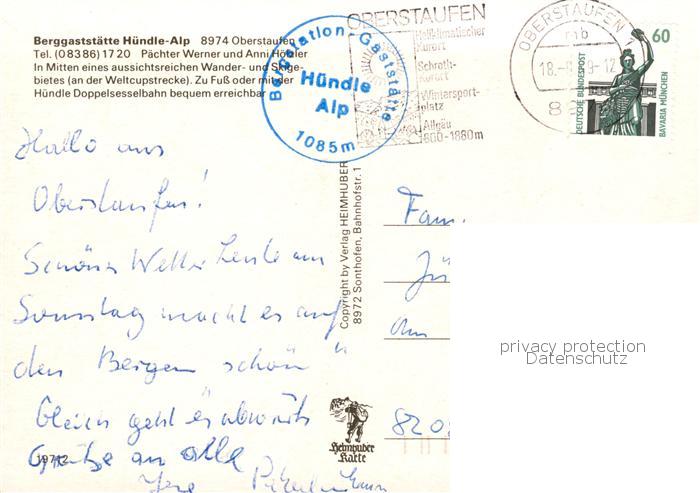 Berggaststätte Hündle-Alp 8974 Oberstaufen
Tel. (08386) 1720 Pächter Werner und Anni
In Mitten eines aussichtsreichen Wander- und Skige-
bietes (an der Weltcupstrecke). Zu Fuß oder mit der
Hündle Doppelsesselbahn bequem erreichbar
Bergstation-Gaststätte
Hündle
Alp
1085m
OBERSTAUFEN
Heilklimatischer
Kurort
Schroth-
kurort
Wintersport-
platz
Allgäu
800-1880m
OBERSTAUFEN
mb
18.
9-12
60
DEUTSCHE BUNDESPOST
BAVARIA MÜNCHEN
Hallo aus
Oberstaufen!
Schönes Wetter heute am
Sonntag macht es auf
den Bergen schön"
Gleich geht es abwärts
Grüße an alle
19712
Copyright by Verlag HEIMHUBER
8972 Sonthofen, Bahnhofstr. 1
Heimhuber
Karte
Fam.
Jü
Am
820
privacy protection
Datenschutz